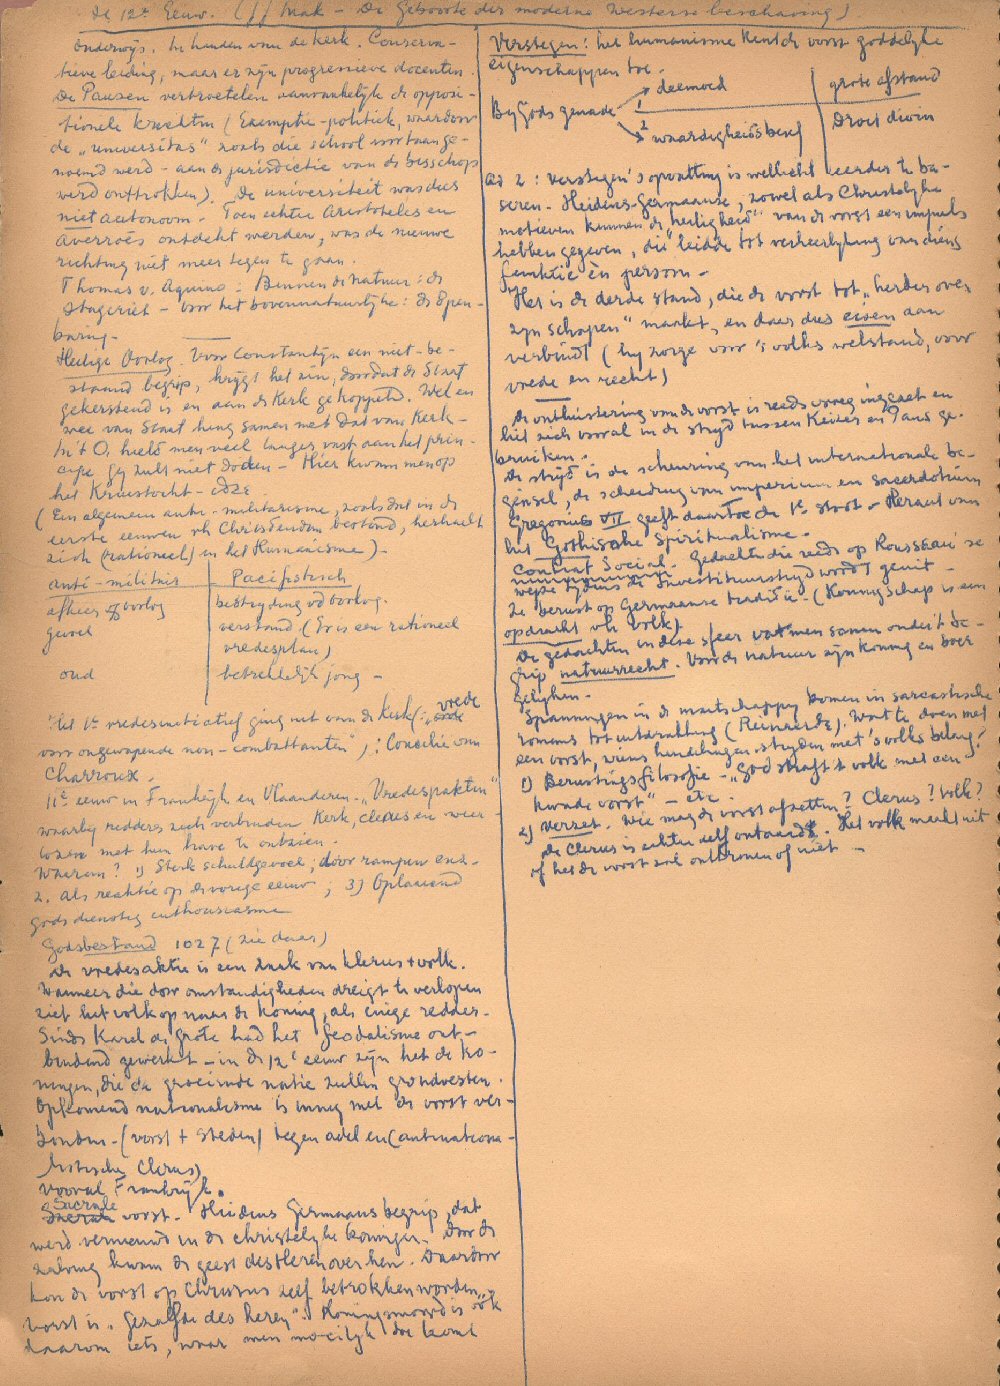 de 12e Eeuw. (J/ Mak - De Geboorte der moderne Westerse beschaving)
Onderwijs. In handen van de Kerk. Conserva-
tieve leiding, maar er zijn progressieve docenten.
De Pausen vertroetelen aanvankelijk de opposi-
tionele krachten (Exemptie-politiek, waardoor
de „universitas” zoals die school voortaan ge-
noemd werd - aan de jurisdictie van de bisschop
werd onttrokken). De universiteit was dus
niet autonoom. Toen echter Aristoteles en
Averroës ontdekt werden, was de nieuwe
richting niet meer tegen te gaan.
Thomas v. Aquino: Binnen de natuur: de
Stagiriet - Voor het bovennatuurlijke: de Open-
baring.
Heilige Oorlog. Voor Constantijn een niet-be-
staand begrip, krijgt het zin, doordat de Staat
gekerstend is en aan de Kerk gekoppeld. Wel en
wee van Staat hing samen met dat van Kerk -
In 't O. hield men veel langer vast aan het prin-
cipe Gij zult niet doden - Hier kwam men op
het Kruistocht-idee
(Een algemeen anti-militarisme, zoals dat in de
eerste eeuwen vh Christendom bestond, herhaalt
zich (rationeel) in het Humanisme) -
anti-militair Pacifistisch
afkeer oorlog bestrijding vd oorlog.
gevoel verstand (Er is een rationeel
vredesplan)
oud betrekkelijk jong -
Het 1e vredesinitiatief ging uit van de Kerk („vrede
voor ongewapende non-combattanten”): Concilie van
Charroux.
11e eeuw in Frankrijk en Vlaanderen - „Vredespakten”
waarbij ridders zich verbinden Kerk, clerus en weer-
lozen met hun have te ontzien.
Waarom? 1) Sterk schuldgevoel, door rampen enz.
2. Als reaktie op de vorige eeuw; 3) Oplaaiend
godsdienstig enthousiasme
Godsbestand 1027 (zie daar)
De vredesaktie is een zaak van klerus + volk.
Wanneer die door omstandigheden dreigt te verlopen
ziet het volk op naar de koning, als enige redder.
Sinds Karel de Grote had het feodalisme ont-
bindend gewerkt - in de 12e eeuw zijn het de ko-
ningen, die de groeiende natie zullen grondvesten.
Opkomend nationalisme is innig met de vorst ver-
bonden - (vorst + steden) tegen adel en (antinationa-
listische clerus)
vooral Frankrijk.
Sacrale
vorst - Heidens Germaans begrip, dat
werd vernieuwd in de christelijke koningen. Door de
zalving kwam de geest des Heren over hen. Daardoor
kon de vorst op Christus zelf betrokken worden.
Vorst is „Gezalfde des heren”. Koningsmoord is ook
daarom iets, waar men moeilijk toe komt
Verstegen: het humanisme kent de vorst goddelijke
eigenschappen toe.
deemoed grote afstand
Bij Gods genade 1
2 waardigheidsbesef Droit divin
Ad 2: Verstegen's opvatting is wellicht eerder te ba-
seren. Heidens-Germaanse, zowel als Christelijke
motieven kunnen de „heiligheid” van de vorst een impuls
hebben gegeven, die leidde tot verheerlijking van diens
funktie èn persoon -
Het is de derde stand, die de vorst tot „herder over
zijn schapen” maakt, en daar dus eisen aan
verbindt (hij zorge voor 's volks welstand, voor
vrede en recht)
De ontluistering van de vorst is reeds vroeg ingezet en
liet zich vooral in de strijd tussen Keizer en Paus ge-
bruiken.
De strijd is de scheuring van het internationale be-
ginsel, de scheiding van imperium en sacerdotium
Gregorius VII geeft daartoe de 1e stoot - Heraut van
het Gothische Spiritualisme.
Contrat Social. Gedachten die reeds op Rousseau'se
wijze tijdens de Investituurstrijd wordt geuit -
Ze berust op Germaanse traditie - (Koningschap is een
opdracht vh volk)
De gedachten in deze sfeer vat men samen onder 't be-
grip natuurrecht. Voor de natuur zijn koning en boer
gelijken -
Spanningen in de maatschappij komen in sarcastische
romans tot ontlading (Reinaerde). Wat te doen met
een vorst, wiens handelingen strijden met 's volks belang?
1) Berustingsfilosofie - „God straft 't volk met een
kwade vorst” - etc
2) Verzet. Wie mag de vorst afzetten? Clerus? Volk?
De Clerus is echter zelf ontaardt. Het volk maakt uit
of het de vorst zal onttronen of niet -